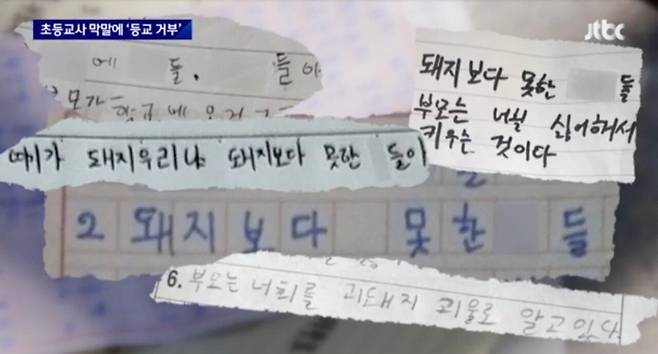 초등교사 막말에 '등교 거부'
jtbc
에 들. 들이
부모가 학교에
돼지보다 못한 들
부모는 너희를 싫어해서
키우는 것이다
여기가 돼지우리냐 돼지보다 못한 들이
2 돼지보다 못한 들
6. 부모는 너희를 괴물로 알고 있다